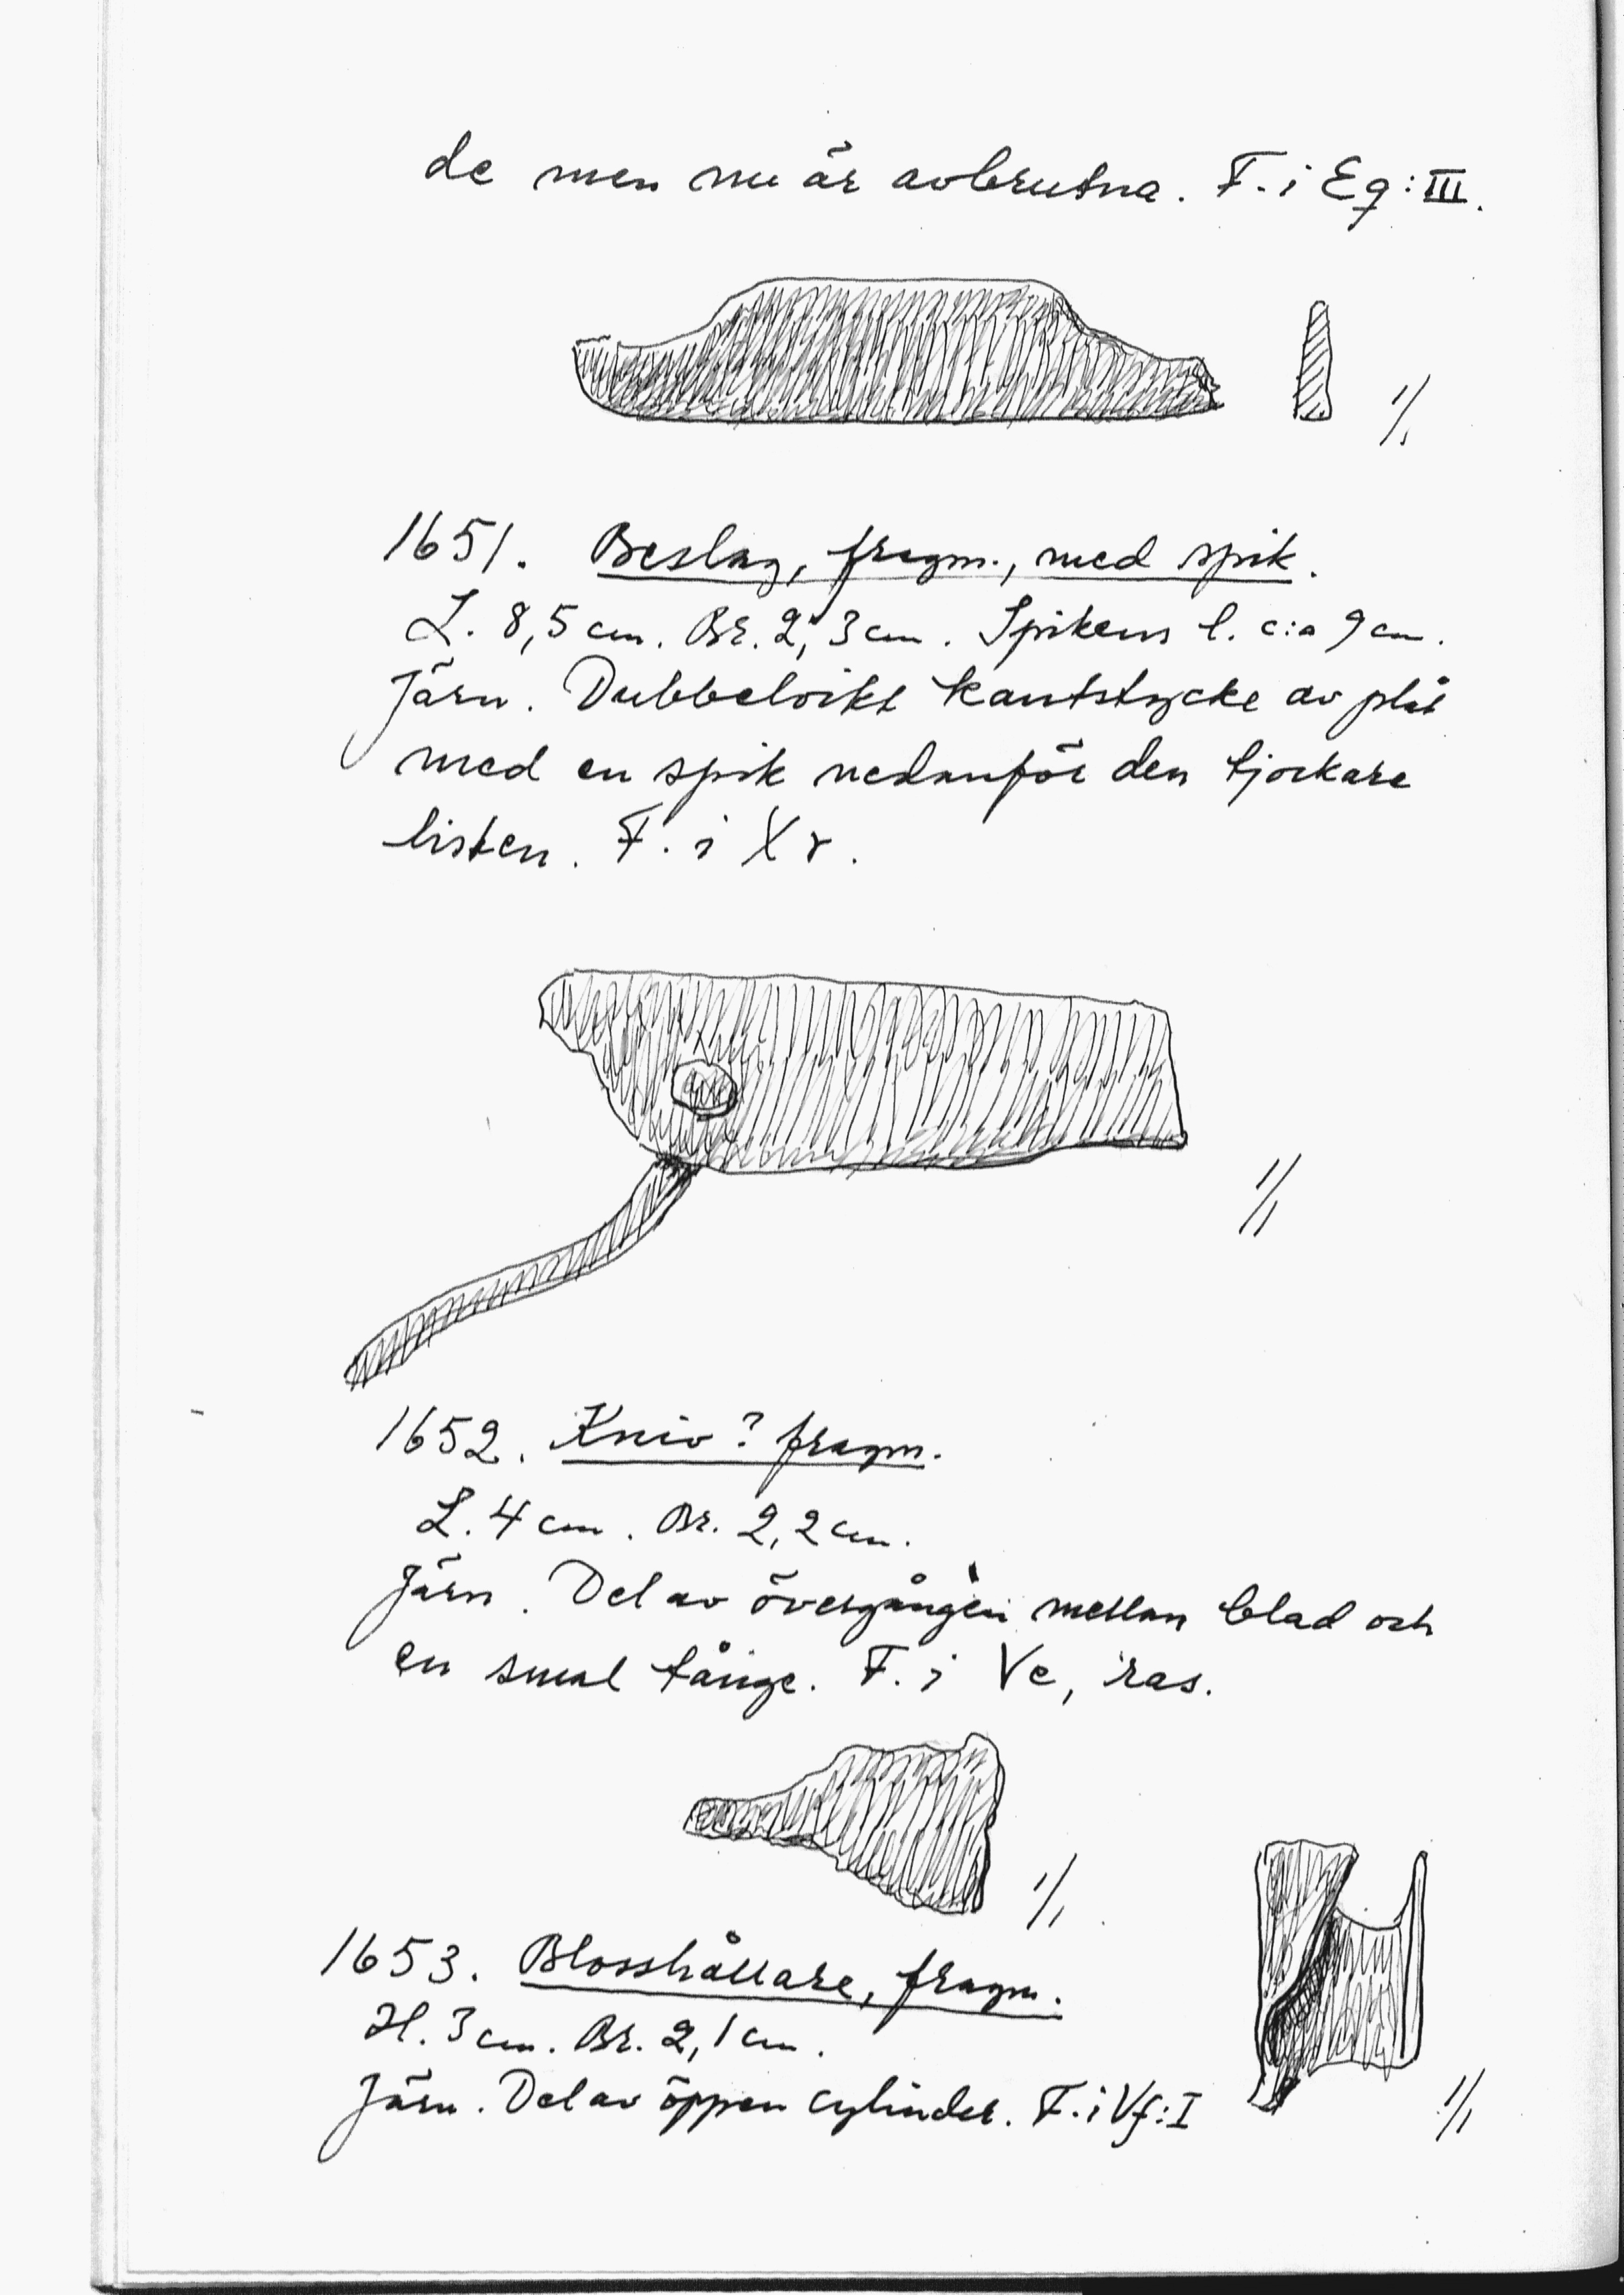 de men nu är avbrutna. F. i Eq:III.
1/1
1651. Beslag, fragm., med spik.
L. 8,5 cm. Br. 2,3 cm. Spikens l. c:a 9 cm.
Järn. Dubbelvikt kantstycke av plåt
med en spik nedanför den tjockare
listen. F. i X r.
1/1
1652. Kniv? fragm.
L. 4 cm. Br. 2,2 cm.
Järn. Del av övergången mellan blad och
en smal tånge. F. i Ve, ras.
1/1
1653. Blosshållare, fragm.
H. 3 cm. Br. 2,1 cm.
Järn. Del av öppen cylinder. F. i Vf:I
1/1